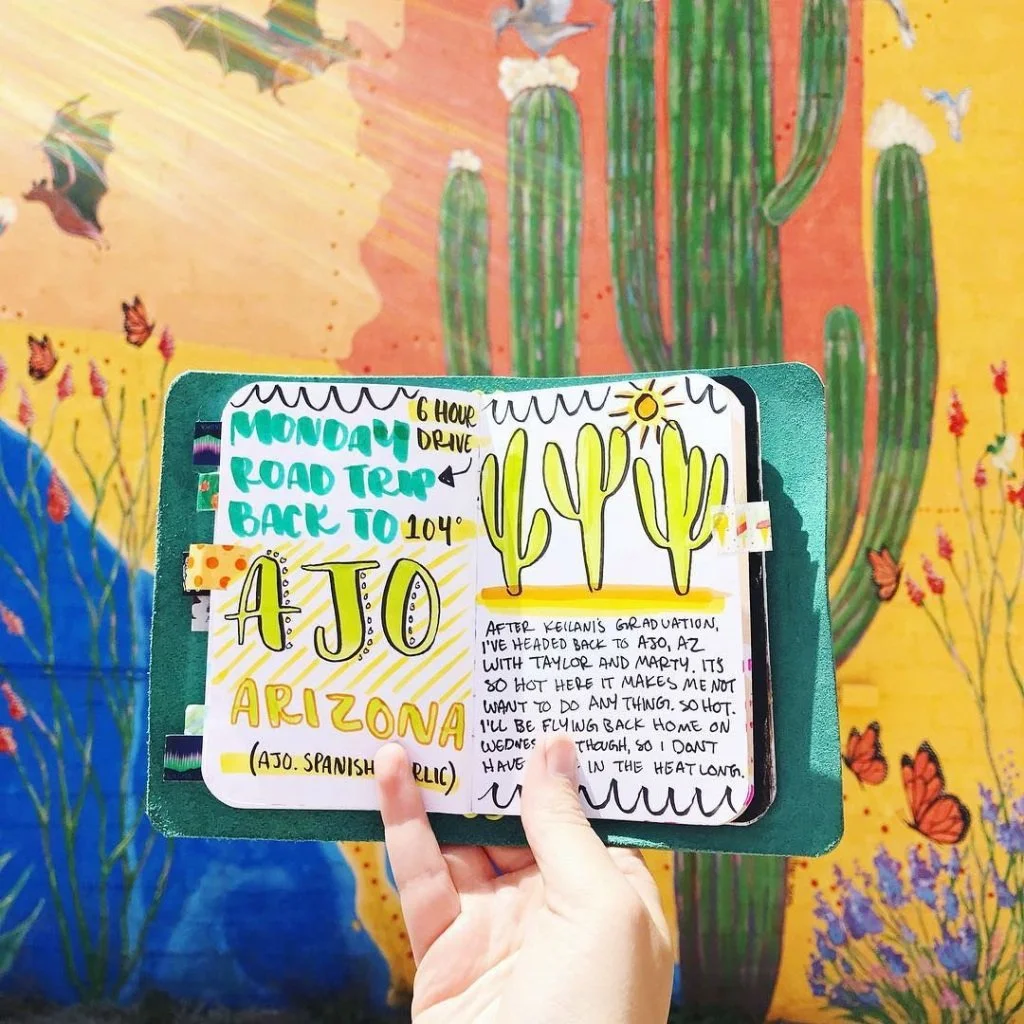 MONDAY
ROAD TRIP
BACK TO
6 HOUR
DRIVE
104°
AJO
ARIZONA
(AJO. SPANISH
AFTER KEILANI'S GRADUATION,
I'VE HEADED BACK TO AJO, AZ
WITH TAYLOR AND MARTY. ITS
SO HOT HERE IT MAKES ME NOT
WANT TO DO ANYTHING. SO HOT.
I'LL BE FLYING BACK HOME ON
THOUGH, SO I DON'T
HAVE IN THE HEAT LONG.